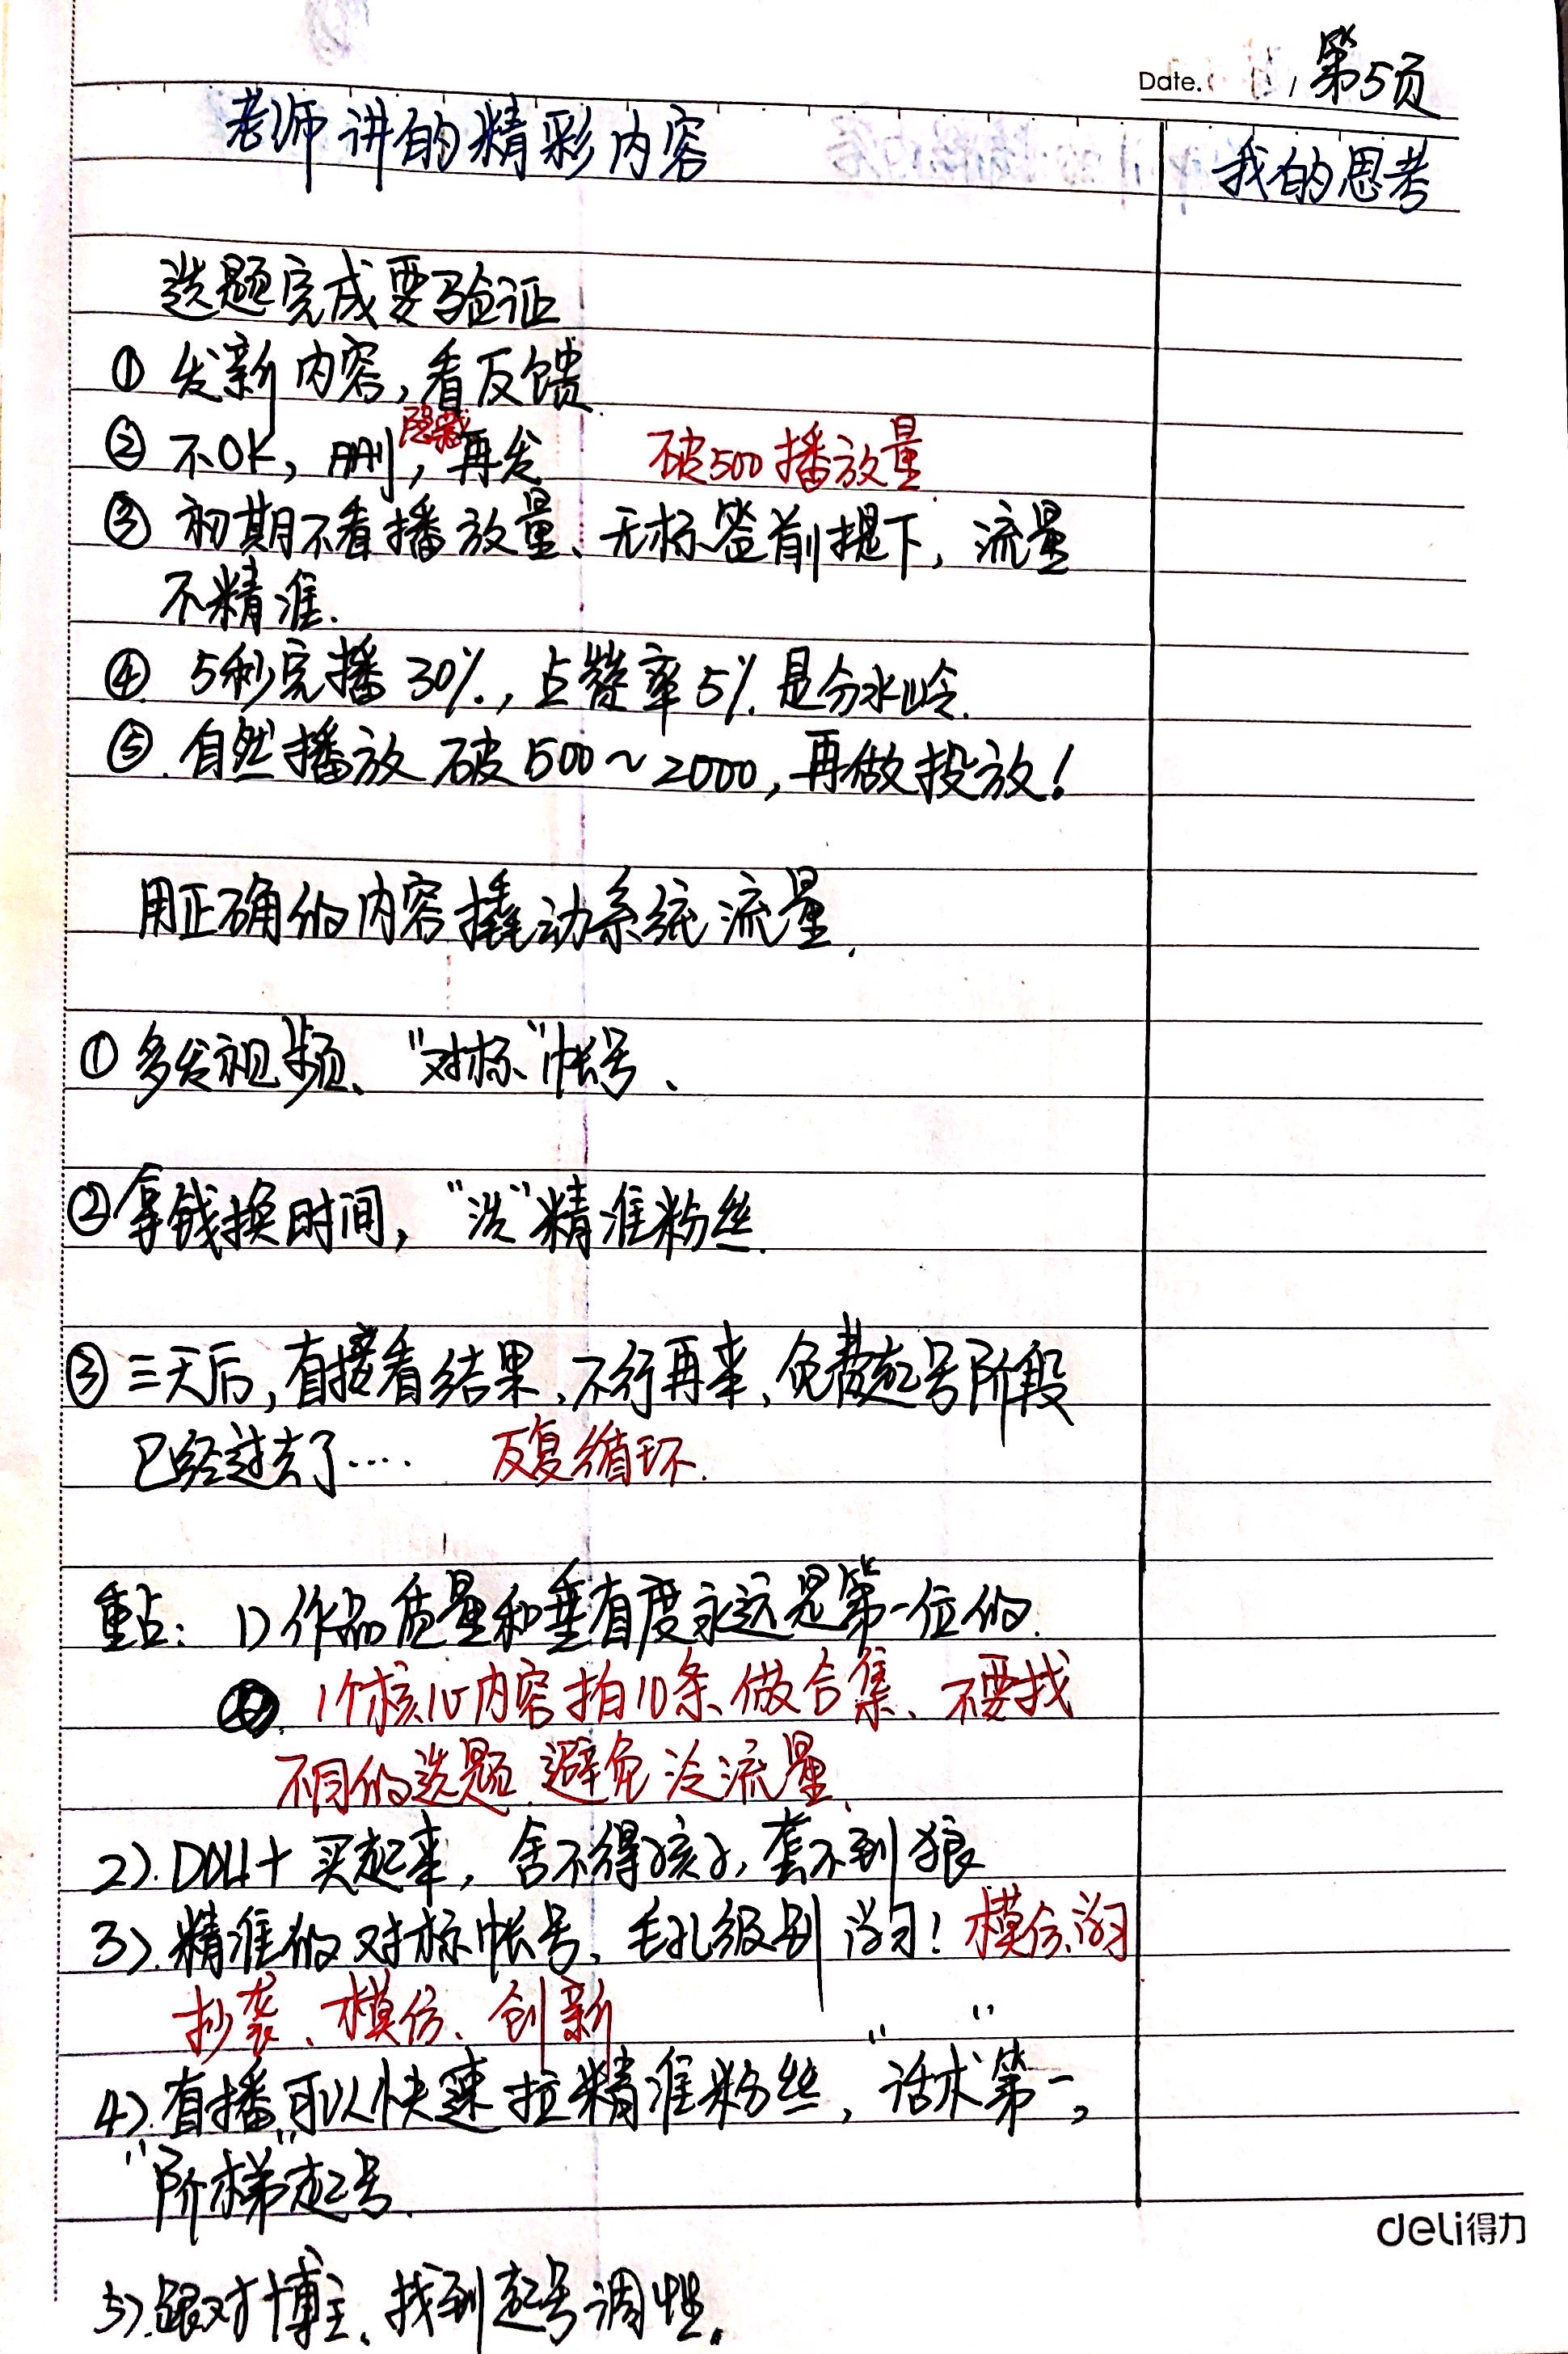 Date. 第5页
老师讲的精彩内容 我的思考
选题完成要验证
① 发新内容,看反馈
隐藏
② 不OK, 删, 再发 破500播放量.
③ 初期不看播放量、无标签前提下, 流量
不精准.
④ 5秒完播30%., 点赞率5%. 是分水岭.
⑤. 自然播放破500~2000, 再做投放!
用正确的内容撬动系统流量.
① 多发视频、"对标"帐号、
② 拿钱换时间, "洗"精准粉丝.
③ 三天后, 直接看结果、不行再来, 免费起号阶段
已经过去了…. 反复循环.
重点: 1) 作品质量和垂直度永远是第一位的.
1个核心内容拍10条、做合集、不要找
不同的选题. 避免泛流量.
2). DOU+ 买起来, 舍不得孩子, 套不到狼
3). 精准的对标帐号、毛孔级别学习! 模仿、学习
抄袭、模仿、创新
4). 直播可以快速拉精准粉丝, "话术"第一,
"阶梯"起号.
5). 跟对博主、找到起号调性.
deli得力